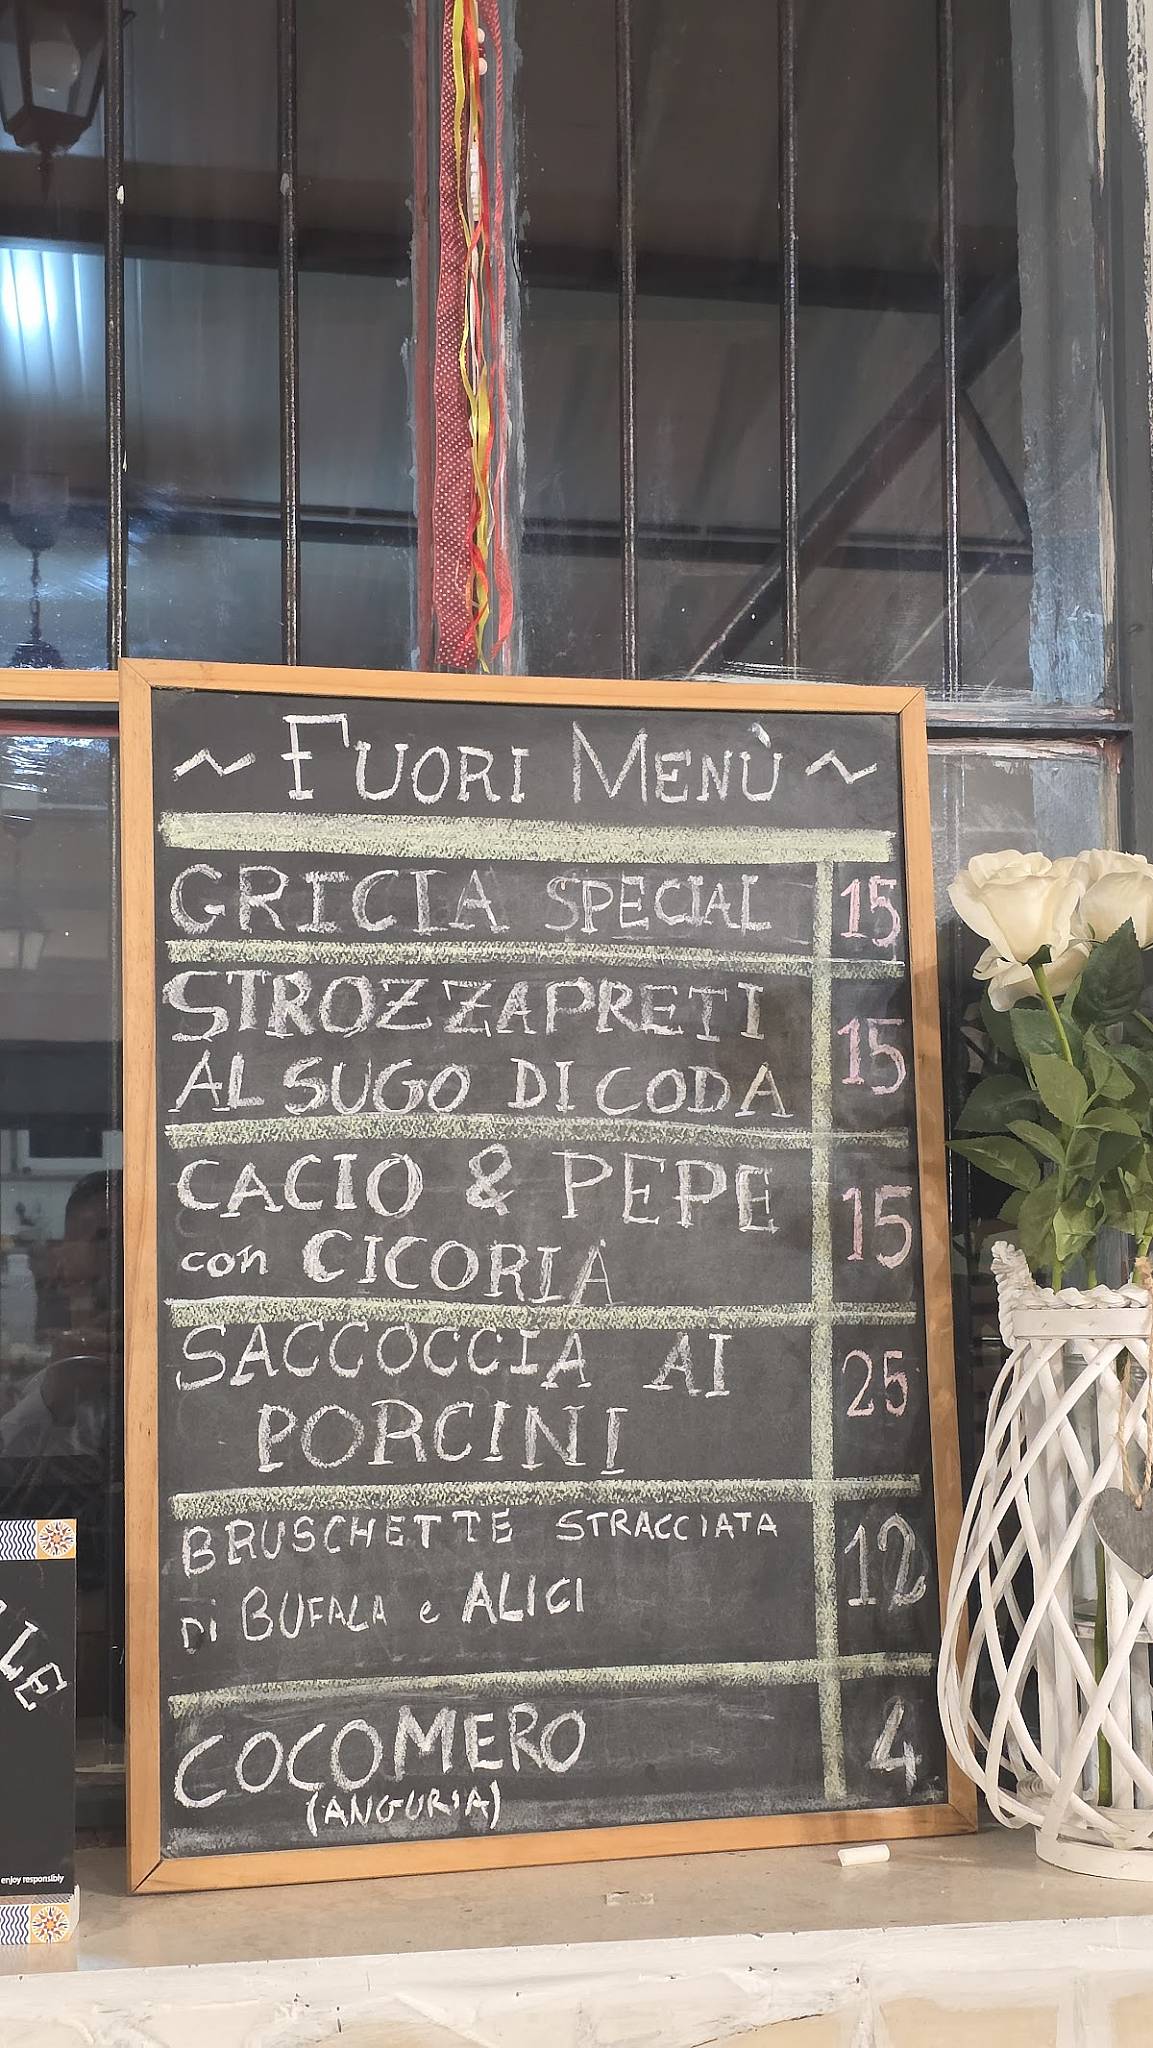 ~ FUORI MENÙ ~
GRICIA SPECIAL 15
STROZZAPRETI
AL SUGO DI CODA 15
CACIO & PEPE
con CICORIA 15
SACCOCCIA AI
PORCINI 25
BRUSCHETTE STRACCIATA
Di BUFALA e ALICI 12
COCOMERO 4
(ANGURIA)
enjoy responsibly